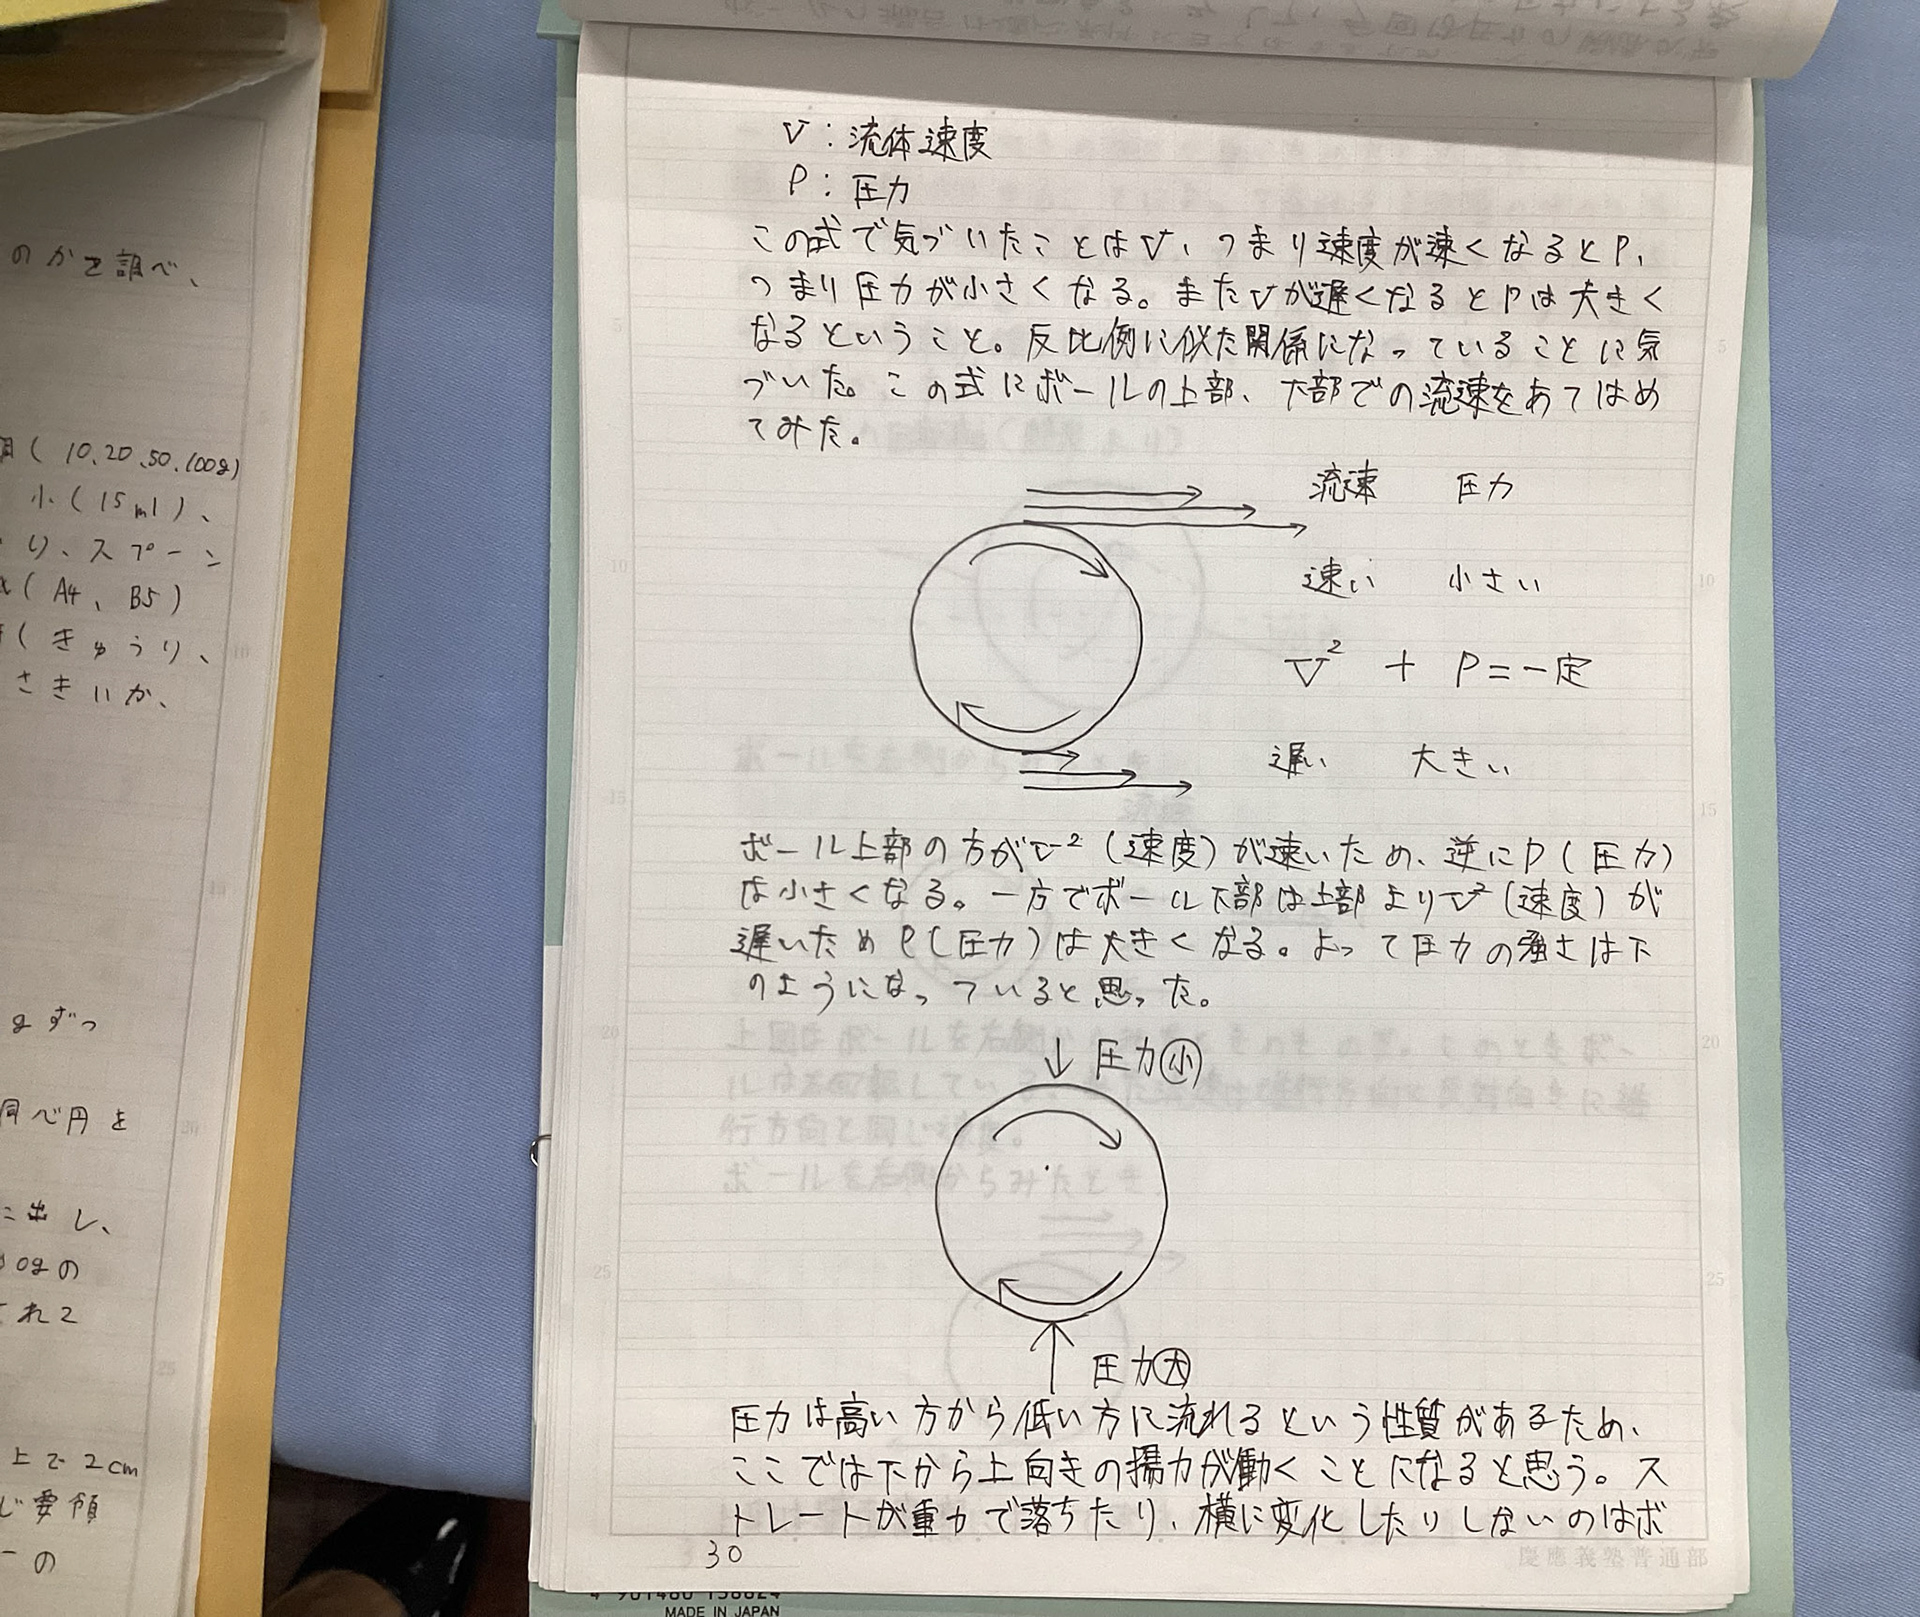 のかを調べ、
(10.20.50.100g)
小(15ml)、
り、スプーン
(A4、B5)
(きゅうり、
さきいか、
gずつ
同心円を
に出し、
0gの
れ2
上で2cm
じ要領
ーの
V：流体速度
P：圧力
この式で気づいたことはV、つまり速度が速くなるとP、
つまり圧力が小さくなる。またVが遅くなるとPは大きく
なるということ。反比例に似た関係になっていることに気
づいた。この式にボールの上部、下部での流速をあてはめ
てみた。
流速 圧力
速い 小さい
V² + P=一定
遅い 大きい
ボール上部の方がV²(速度)が速いため、逆にP(圧力)
は小さくなる。一方でボール下部は上部よりV²(速度)が
遅いためP(圧力)は大きくなる。よって圧力の強さは下
のようになっていると思った。
↓圧力㊙小
圧力大
圧力は高い方から低い方に流れるという性質があるため、
ここでは下から上向きの揚力が働くことになると思う。ス
トレートが重力で落ちたり、横に変化したりしないのはボ
30
慶應義塾普通部
MADE IN JAPAN